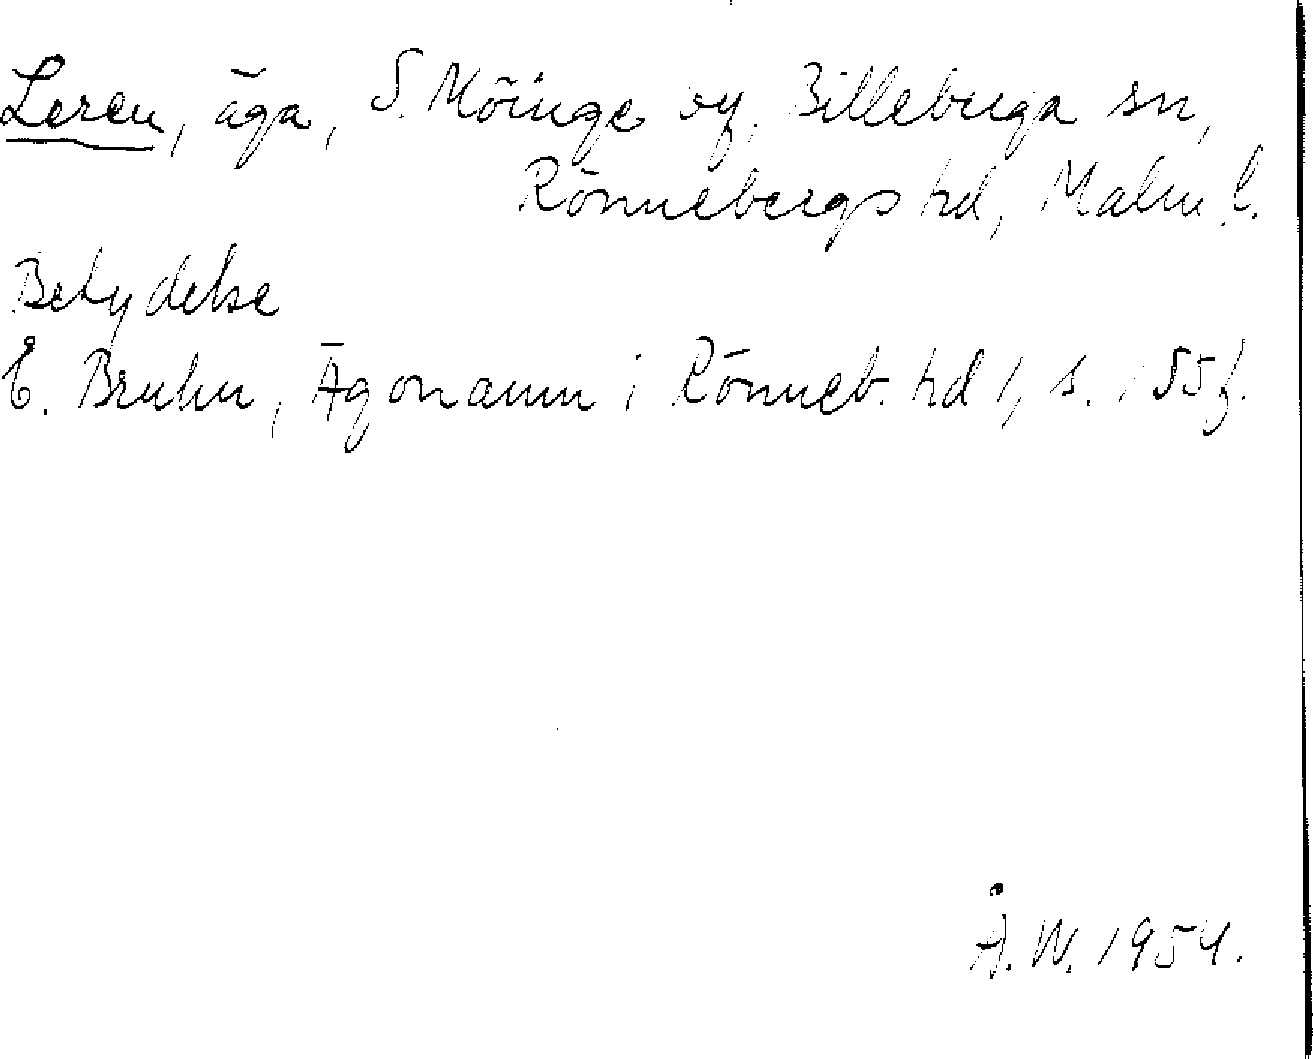 Leren, äga, S. Möinge by, Billeberga sn,
Rönnebergs hd, Malm. l.
Betydelse
E. Bruhn, Ägonamn i Rönneb. hd 1, s. 155 f.
Å. W. 1954.